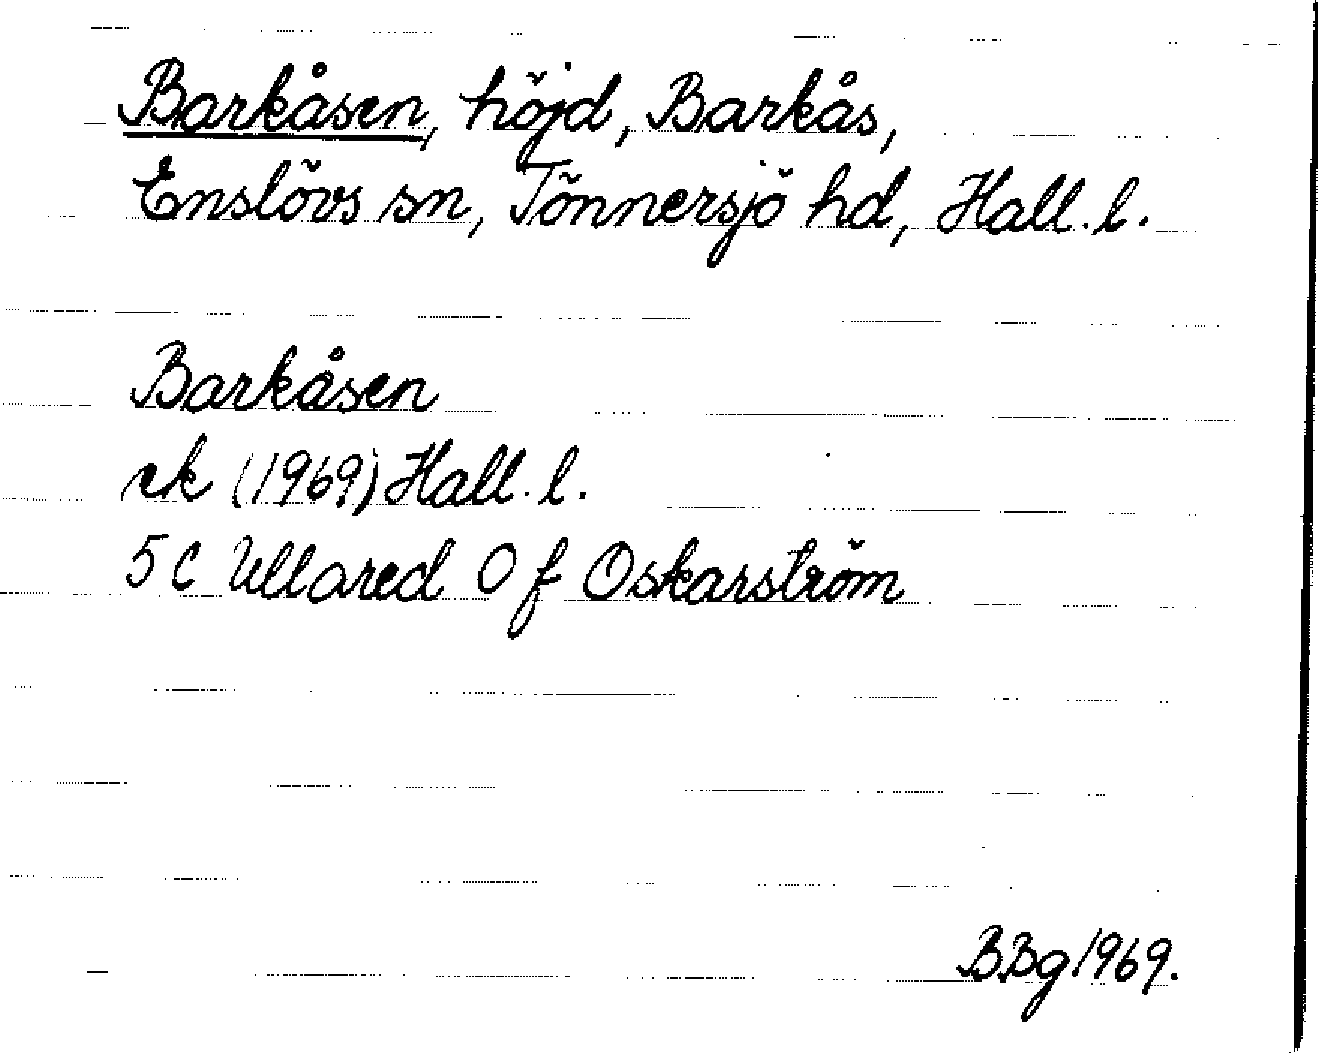 Barkåsen, höjd, Barkås,
Enslövs sn, Tönnersjö hd, Hall. l.
Barkåsen
ek (1969) Hall. l.
5 C Ullared O f Oskarström
BBg 1969.